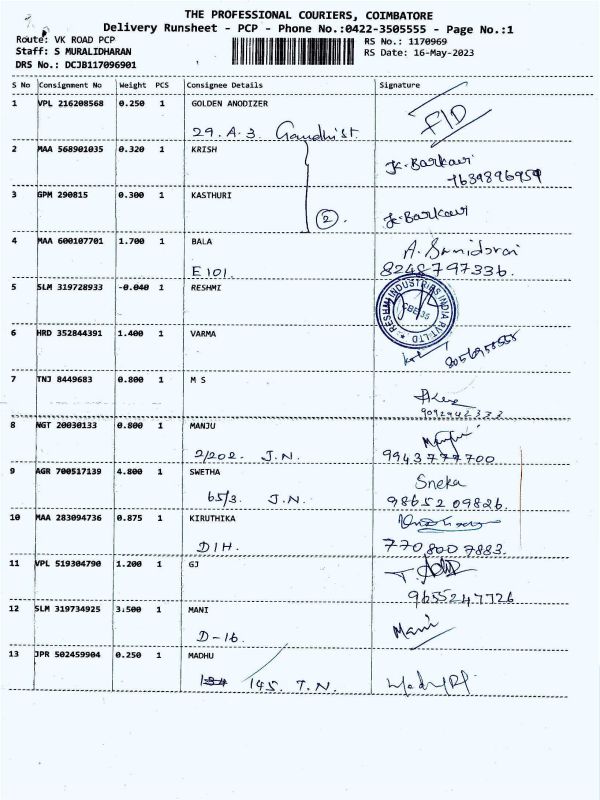 THE PROFESSIONAL COURIERS, COIMBATORE
Delivery Runsheet - PCP - Phone No.:0422-3505555 - Page No.:1
Route: VK ROAD PCP
RS No.: 1170969
Staff: S MURALIDHARAN
RS Date: 16-May-2023
DRS No.: DCJB117096901
S No Consignment No Weight PCS Consignee Details Signature
1 VPL 216208568 0.250 1 GOLDEN ANODIZER
29. A. 3. Gandhi st. FID
2 MAA 568901035 0.320 1 KRISH
K. Barkavi
7639896959
3 GPM 290815 0.300 1 KASTHURI
2. K. Barkavi
4 MAA 600107701 1.700 1 BALA
E 101. 8248797336.
5 SLM 319728933 -0.040 1 RESHMI
RESHMI INDUSTRIES INDIA PVT LTD
CBE-35
6 HRD 352844391 1.400 1 VARMA
7 TNJ 8449683 0.800 1 M S
8 NGT 20030133 0.800 1 MANJU
2/202. J.N. 9943777700
9 AGR 700517139 4.800 1 SWETHA
Sneka
65/3. J.N. 98652 09826.
10 MAA 283094736 0.875 1 KIRUTHIKA
D1H. 770 800 7883.
11 VPL 519304790 1.200 1 GJ
9655247726
12 SLM 319734925 3.500 1 MANI
D-16. Mani
13 JPR 502459904 0.250 1 MADHU
145. J.N.